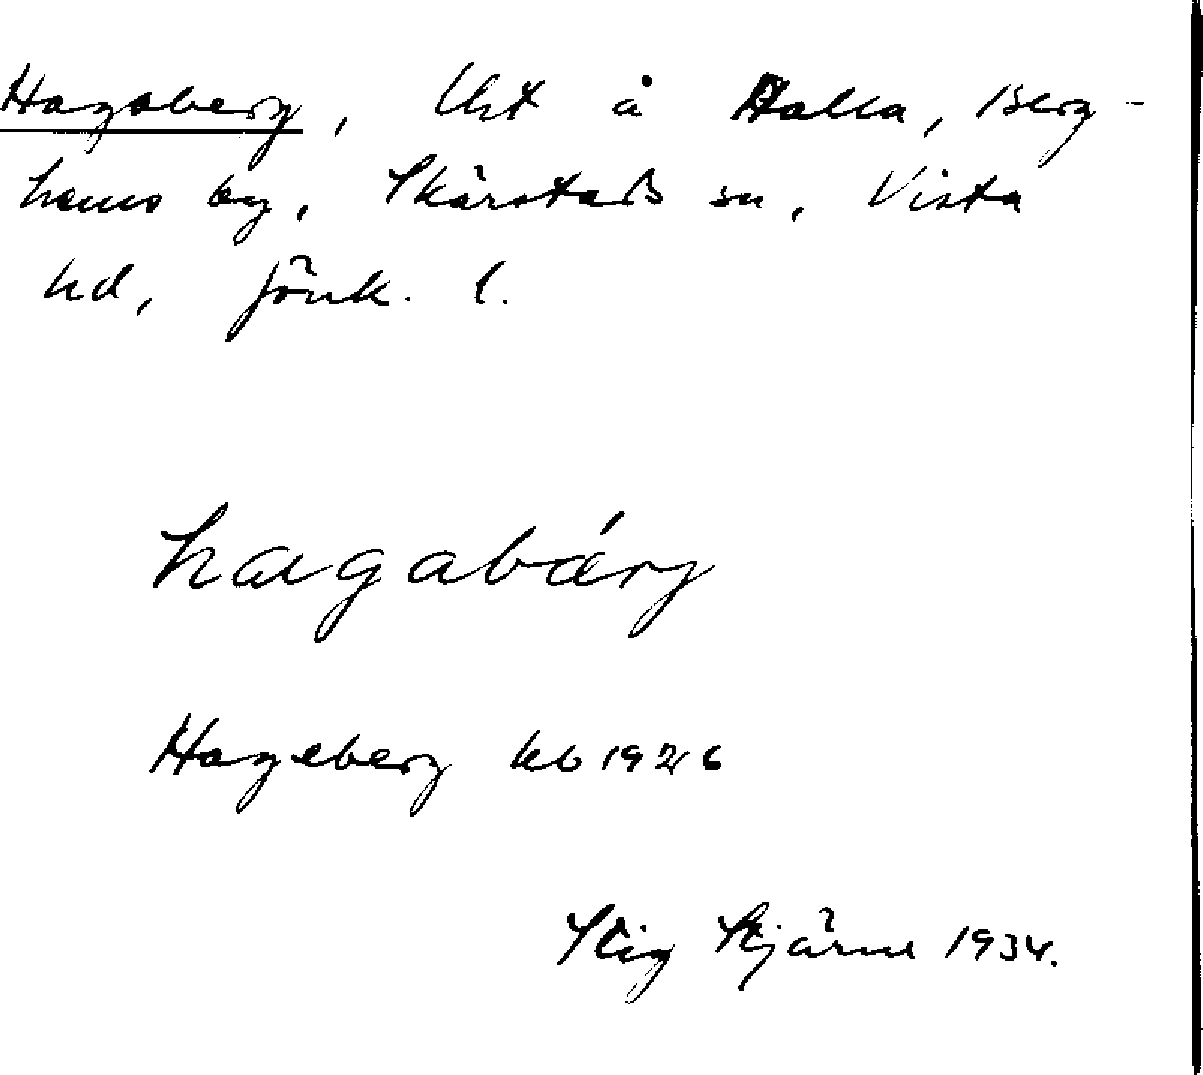 Hagaberg, lht å Halla, Berg-
hems by, Skärstads sn, Vista
hd, Jönk. l.
hagabärg
Hageberg kb 1926
Stig Stjärne 1934.